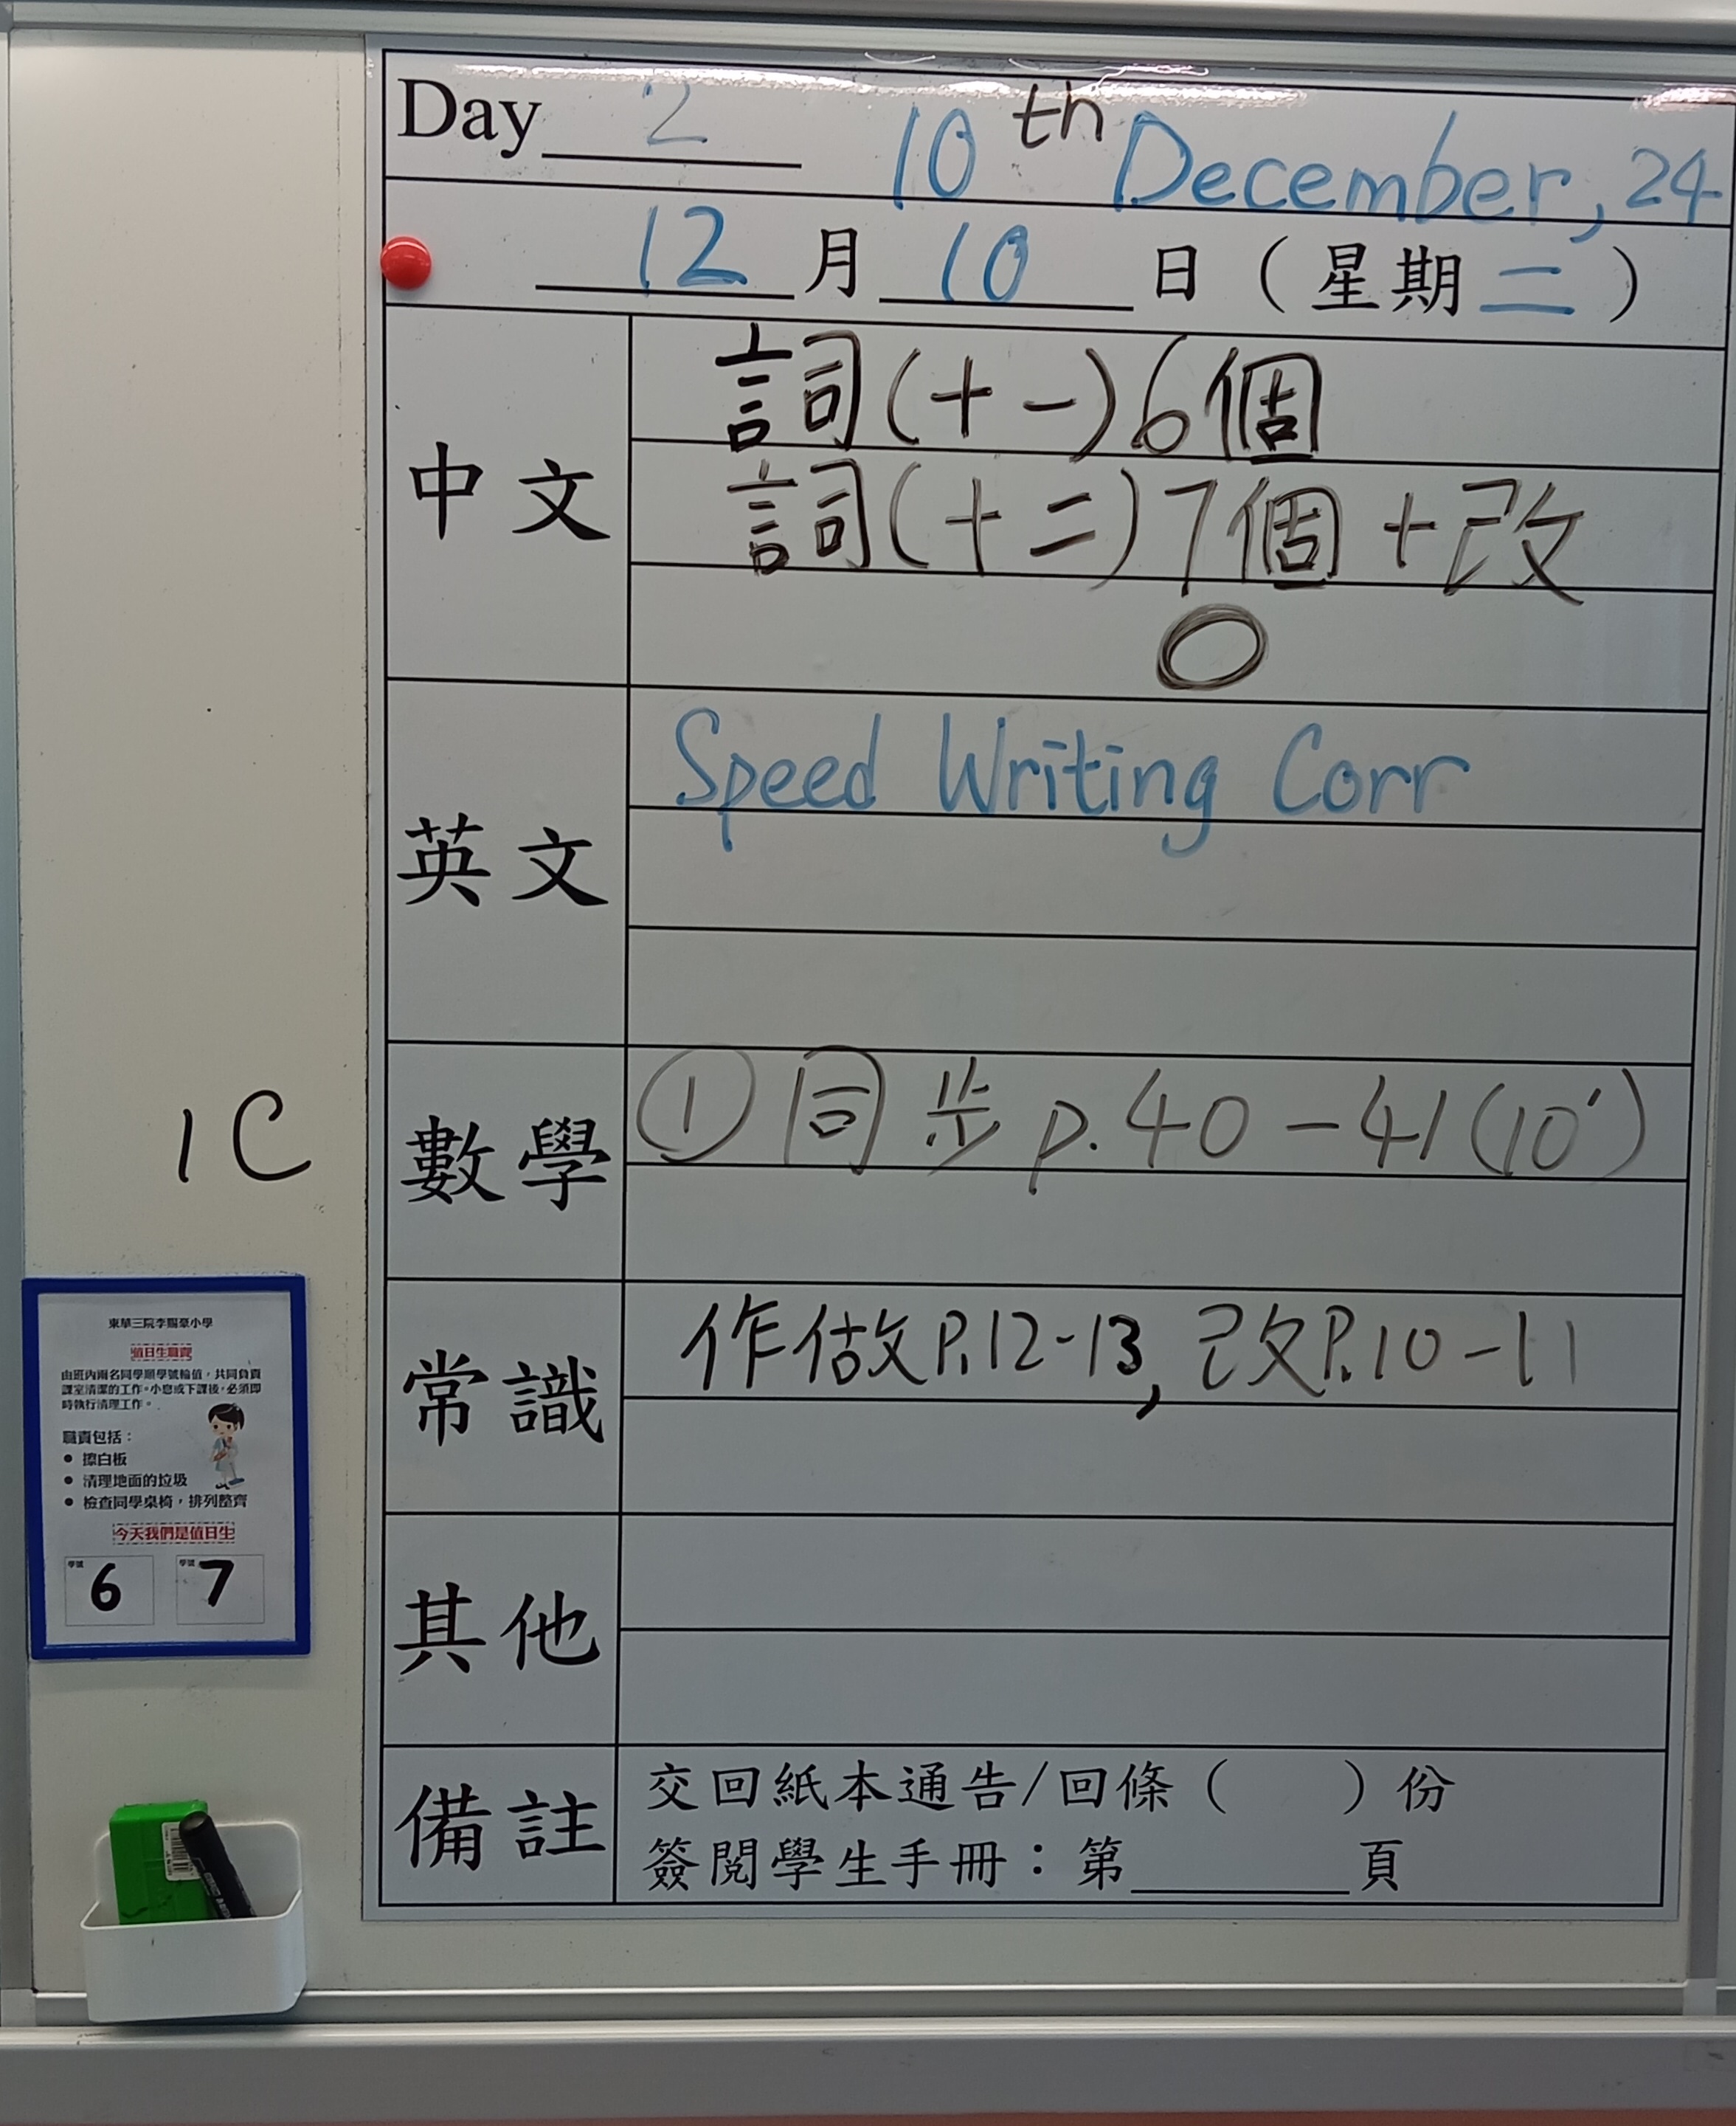 Day 2 10th December, 24
12月10日（星期二）
中文
詞(十一)6個
詞(十二)7個+改
英文
Speed Writing Corr
數學
① 同步 p.40-41(10')
常識
作做P.12-13, 改P.10-11
其他
備註
交回紙本通告/回條（ ）份
簽閱學生手冊：第 頁
1C
東華三院李賜豪小學
值日生職責
由班內兩名同學順學號輪值，共同負責
課室清潔的工作。小息或下課後，必須即
時執行清理工作。
職責包括：
● 擦白板
● 清理地面的垃圾
● 檢查同學桌椅，排列整齊
今天我們是值日生
學號 6 學號 7